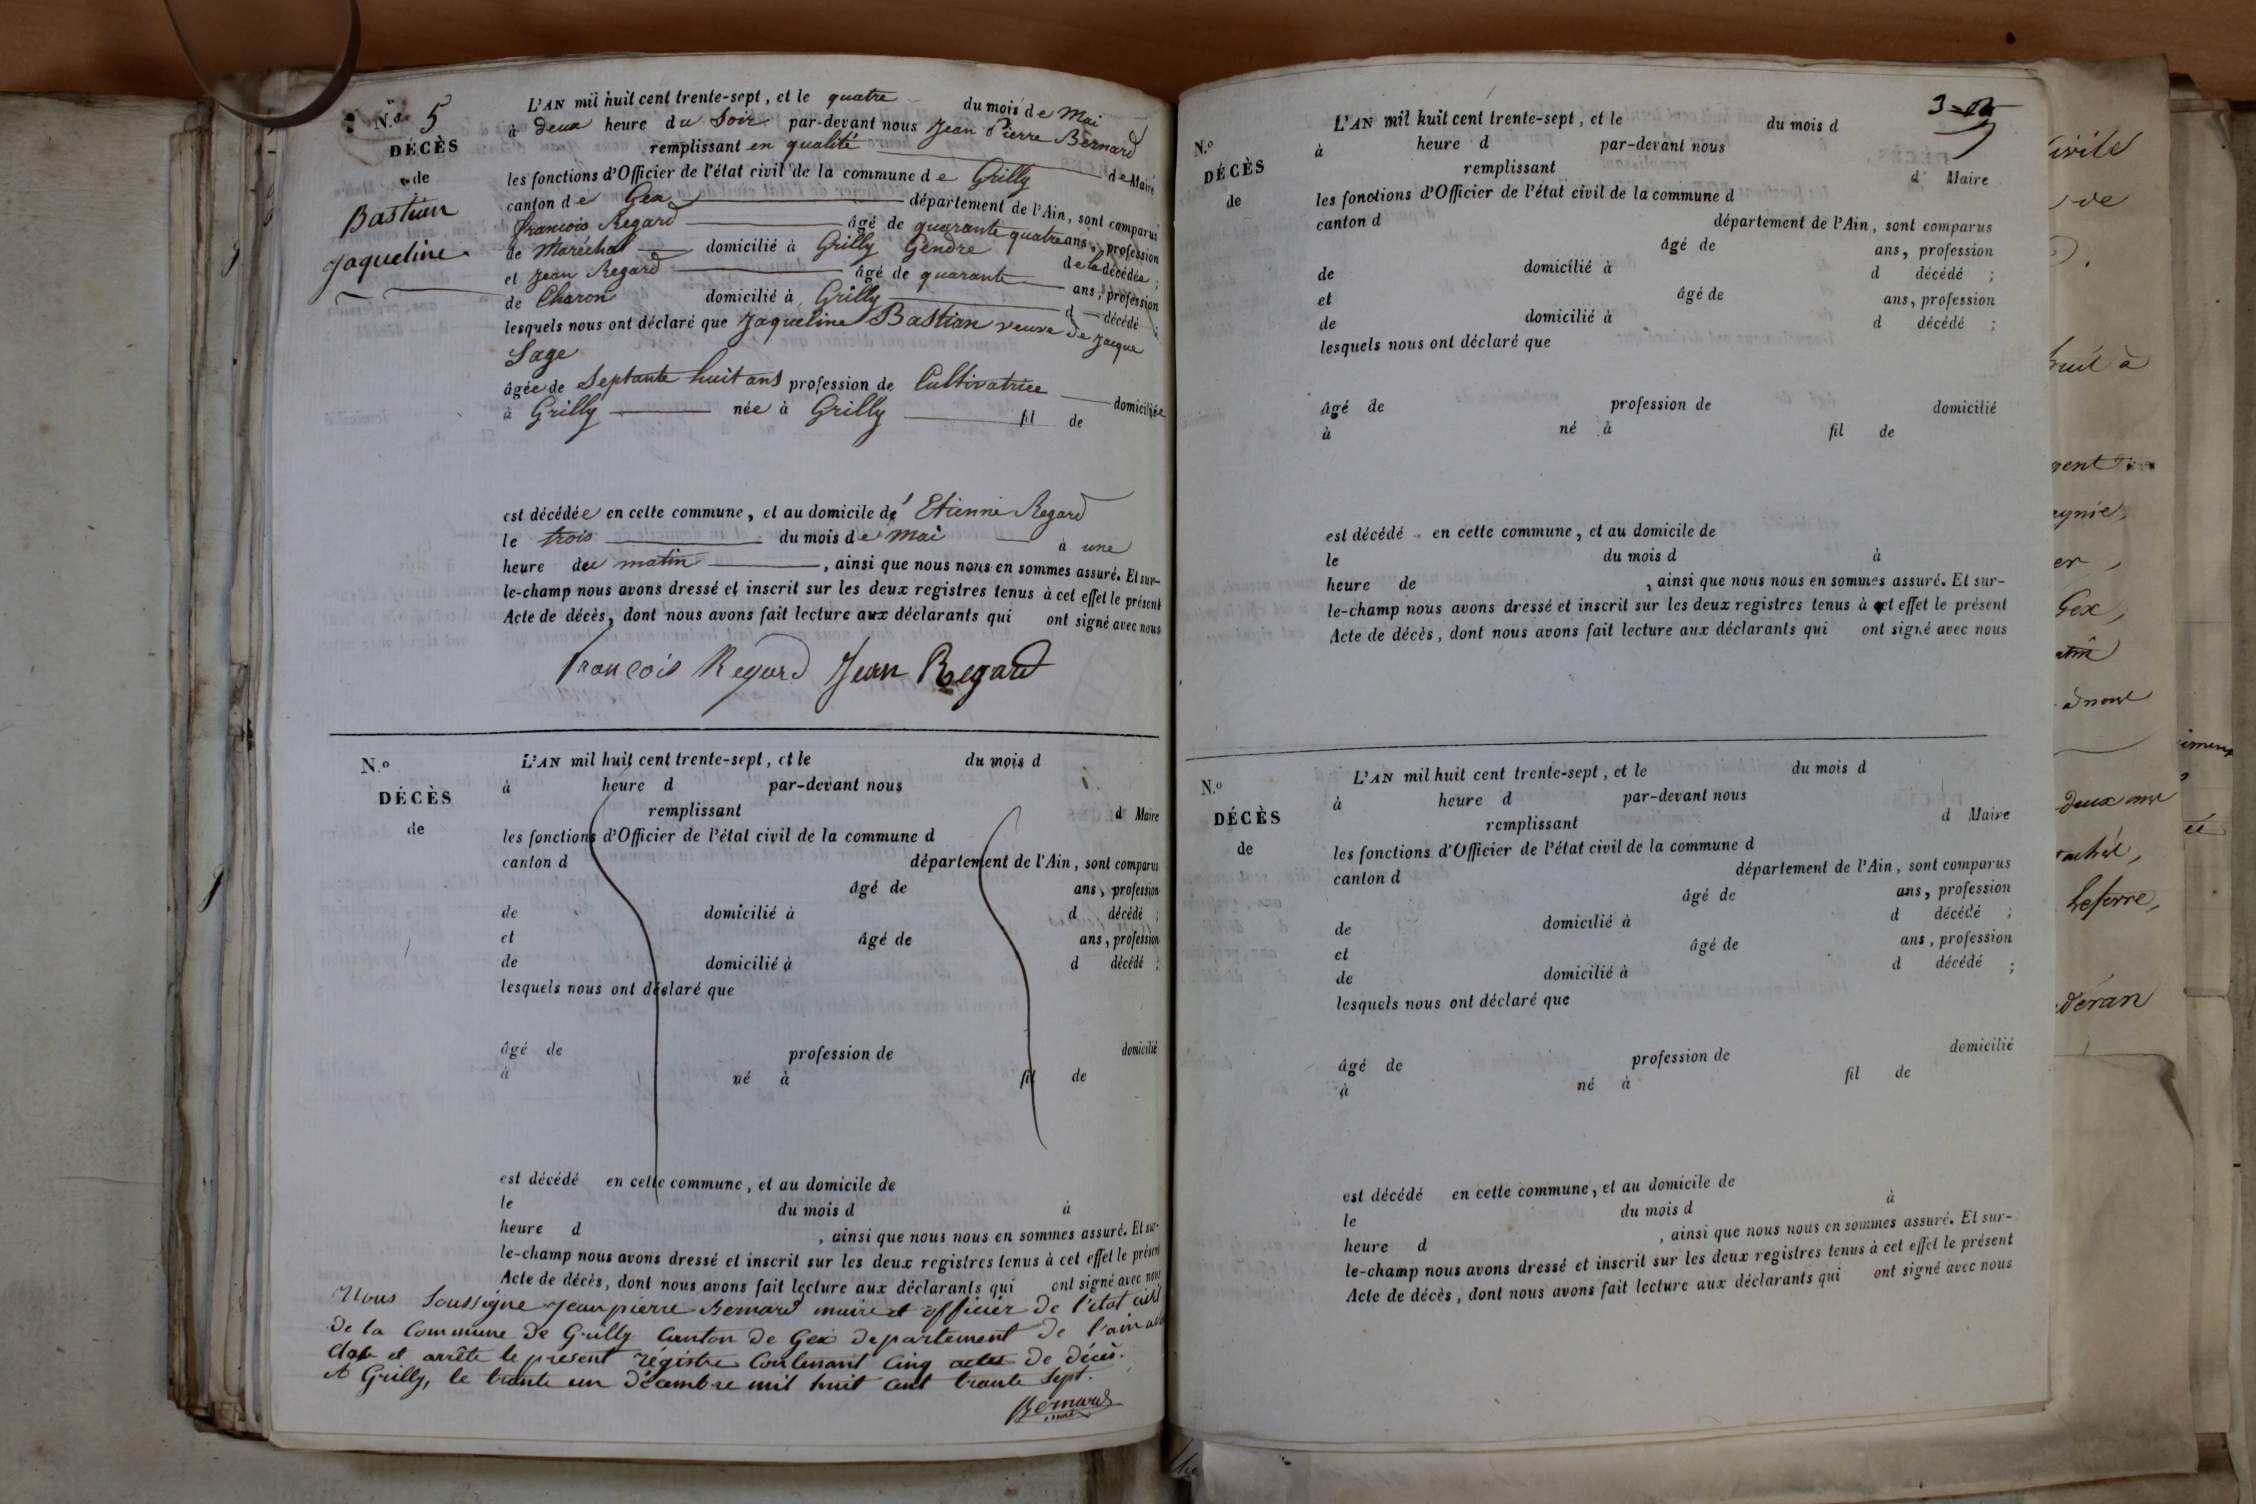 N.o 5
DÉCÈS
de
Bastian
Jaqueline.
L'AN mil huit cent trente-sept, et le quatre du mois de Mai
à deux heure du Soir par-devant nous Jean Pierre Bernard
remplissant en qualité de Maire
les fonctions d'Officier de l'état civil de la commune de Grilly
canton de Gex département de l'Ain, sont comparus
francois Regard âgé de quarante quatre ans, profession
de Maréchal domicilié à Grilly Gendre de la décédée ;
et Jean Regard âgé de quarante ans, profession
de Charon domicilié à Grilly d décédé ;
lesquels nous ont déclaré que Jaqueline Bastian veuve de Jacque
Sage
âgée de Septante huit ans profession de Cultivatrice domiciliée
à Grilly née à Grilly fil de
est décédée en cette commune, et au domicile de Etienne Regard
le trois du mois de Mai à une
heure du matin, ainsi que nous nous en sommes assuré. Et sur-
le-champ nous avons dressé et inscrit sur les deux registres tenus à cet effet le présent
Acte de décès, dont nous avons fait lecture aux déclarants qui ont signé avec nous
francois Regard Jean Regard
N.o
DÉCÈS
de
L'AN mil huit cent trente-sept, et le du mois d
à heure d par-devant nous
remplissant d Maire
les fonctions d'Officier de l'état civil de la commune d
canton d département de l'Ain, sont comparus
âgé de ans, profession
de domicilié à d décédé ;
et âgé de ans, profession
de domicilié à d décédé ;
lesquels nous ont déclaré que
âgé de profession de domicilié
à né à fil de
est décédé en cette commune, et au domicile de
le du mois d à
heure d , ainsi que nous nous en sommes assuré. Et sur-
le-champ nous avons dressé et inscrit sur les deux registres tenus à cet effet le présent
Acte de décès, dont nous avons fait lecture aux déclarants qui ont signé avec nous
Nous Soussigne Jean pierre Bernard maire et officier de l'état civil
de la Commune de Grilly Canton de Gex departement de l'ain
clos et arrête le present régistre Contenant Cinq actes de décès.
A Grilly, le trante un décembre mil huit cent trante Sept.
Bernard
maire
N.o
DÉCÈS
de
L'AN mil huit cent trente-sept, et le du mois d
à heure d par-devant nous
remplissant d Maire
les fonctions d'Officier de l'état civil de la commune d
canton d département de l'Ain, sont comparus
âgé de ans, profession
de domicilié à d décédé ;
et âgé de ans, profession
de domicilié à d décédé ;
lesquels nous ont déclaré que
âgé de profession de domicilié
à né à fil de
est décédé en cette commune, et au domicile de
le du mois d à
heure de , ainsi que nous nous en sommes assuré. Et sur-
le-champ nous avons dressé et inscrit sur les deux registres tenus à cet effet le présent
Acte de décès, dont nous avons fait lecture aux déclarants qui ont signé avec nous
N.o
DÉCÈS
de
L'AN mil huit cent trente-sept, et le du mois d
à heure d par-devant nous
remplissant d Maire
les fonctions d'Officier de l'état civil de la commune d
canton d département de l'Ain, sont comparus
âgé de ans, profession
de domicilié à d décédé ;
et âgé de ans, profession
de domicilié à d décédé ;
lesquels nous ont déclaré que
âgé de profession de domicilié
à né à fil de
est décédé en cette commune, et au domicile de
le du mois d à
heure d , ainsi que nous nous en sommes assuré. Et sur-
le-champ nous avons dressé et inscrit sur les deux registres tenus à cet effet le présent
Acte de décès, dont nous avons fait lecture aux déclarants qui ont signé avec nous